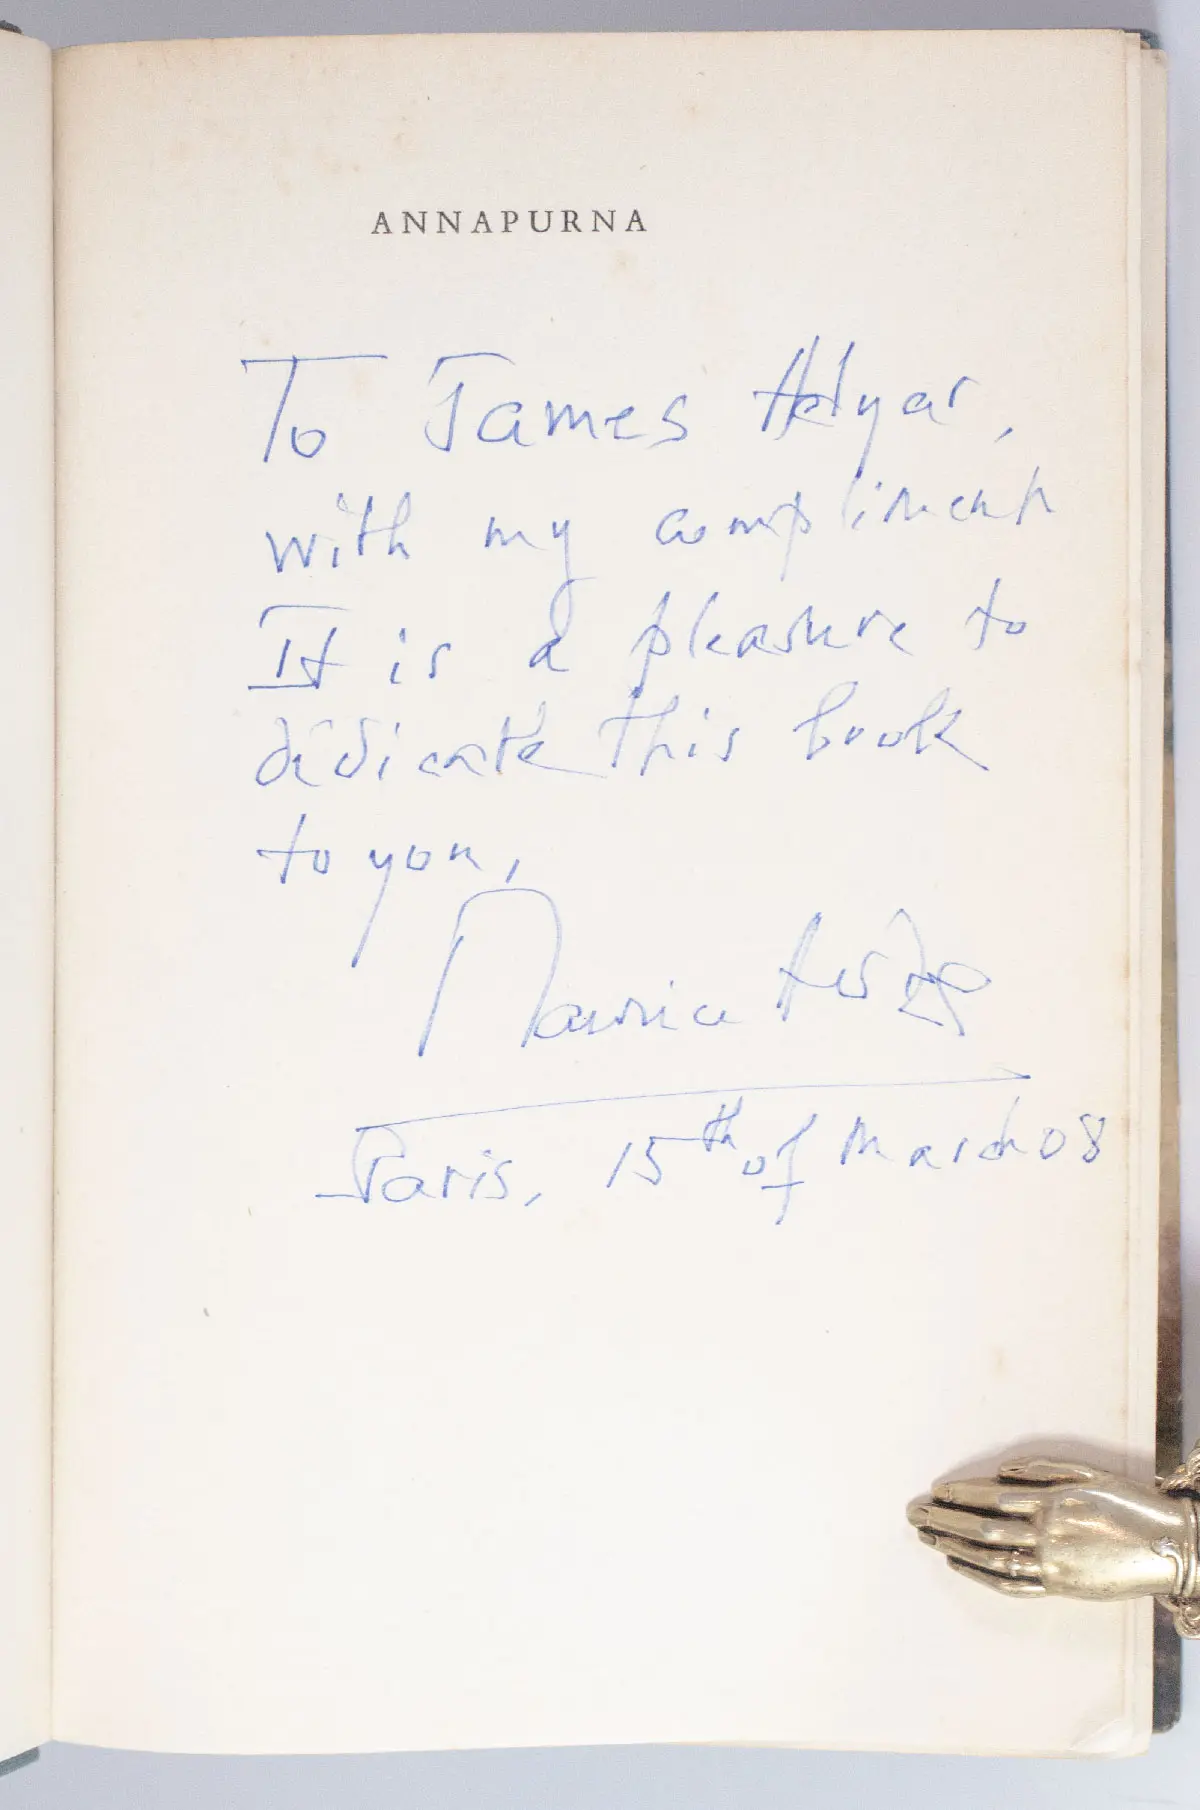 ANNAPURNA
To James
with my compliment
It is a pleasure to
dédicate this book
to you,
Maurice Herzog
Paris, 15th of March 08